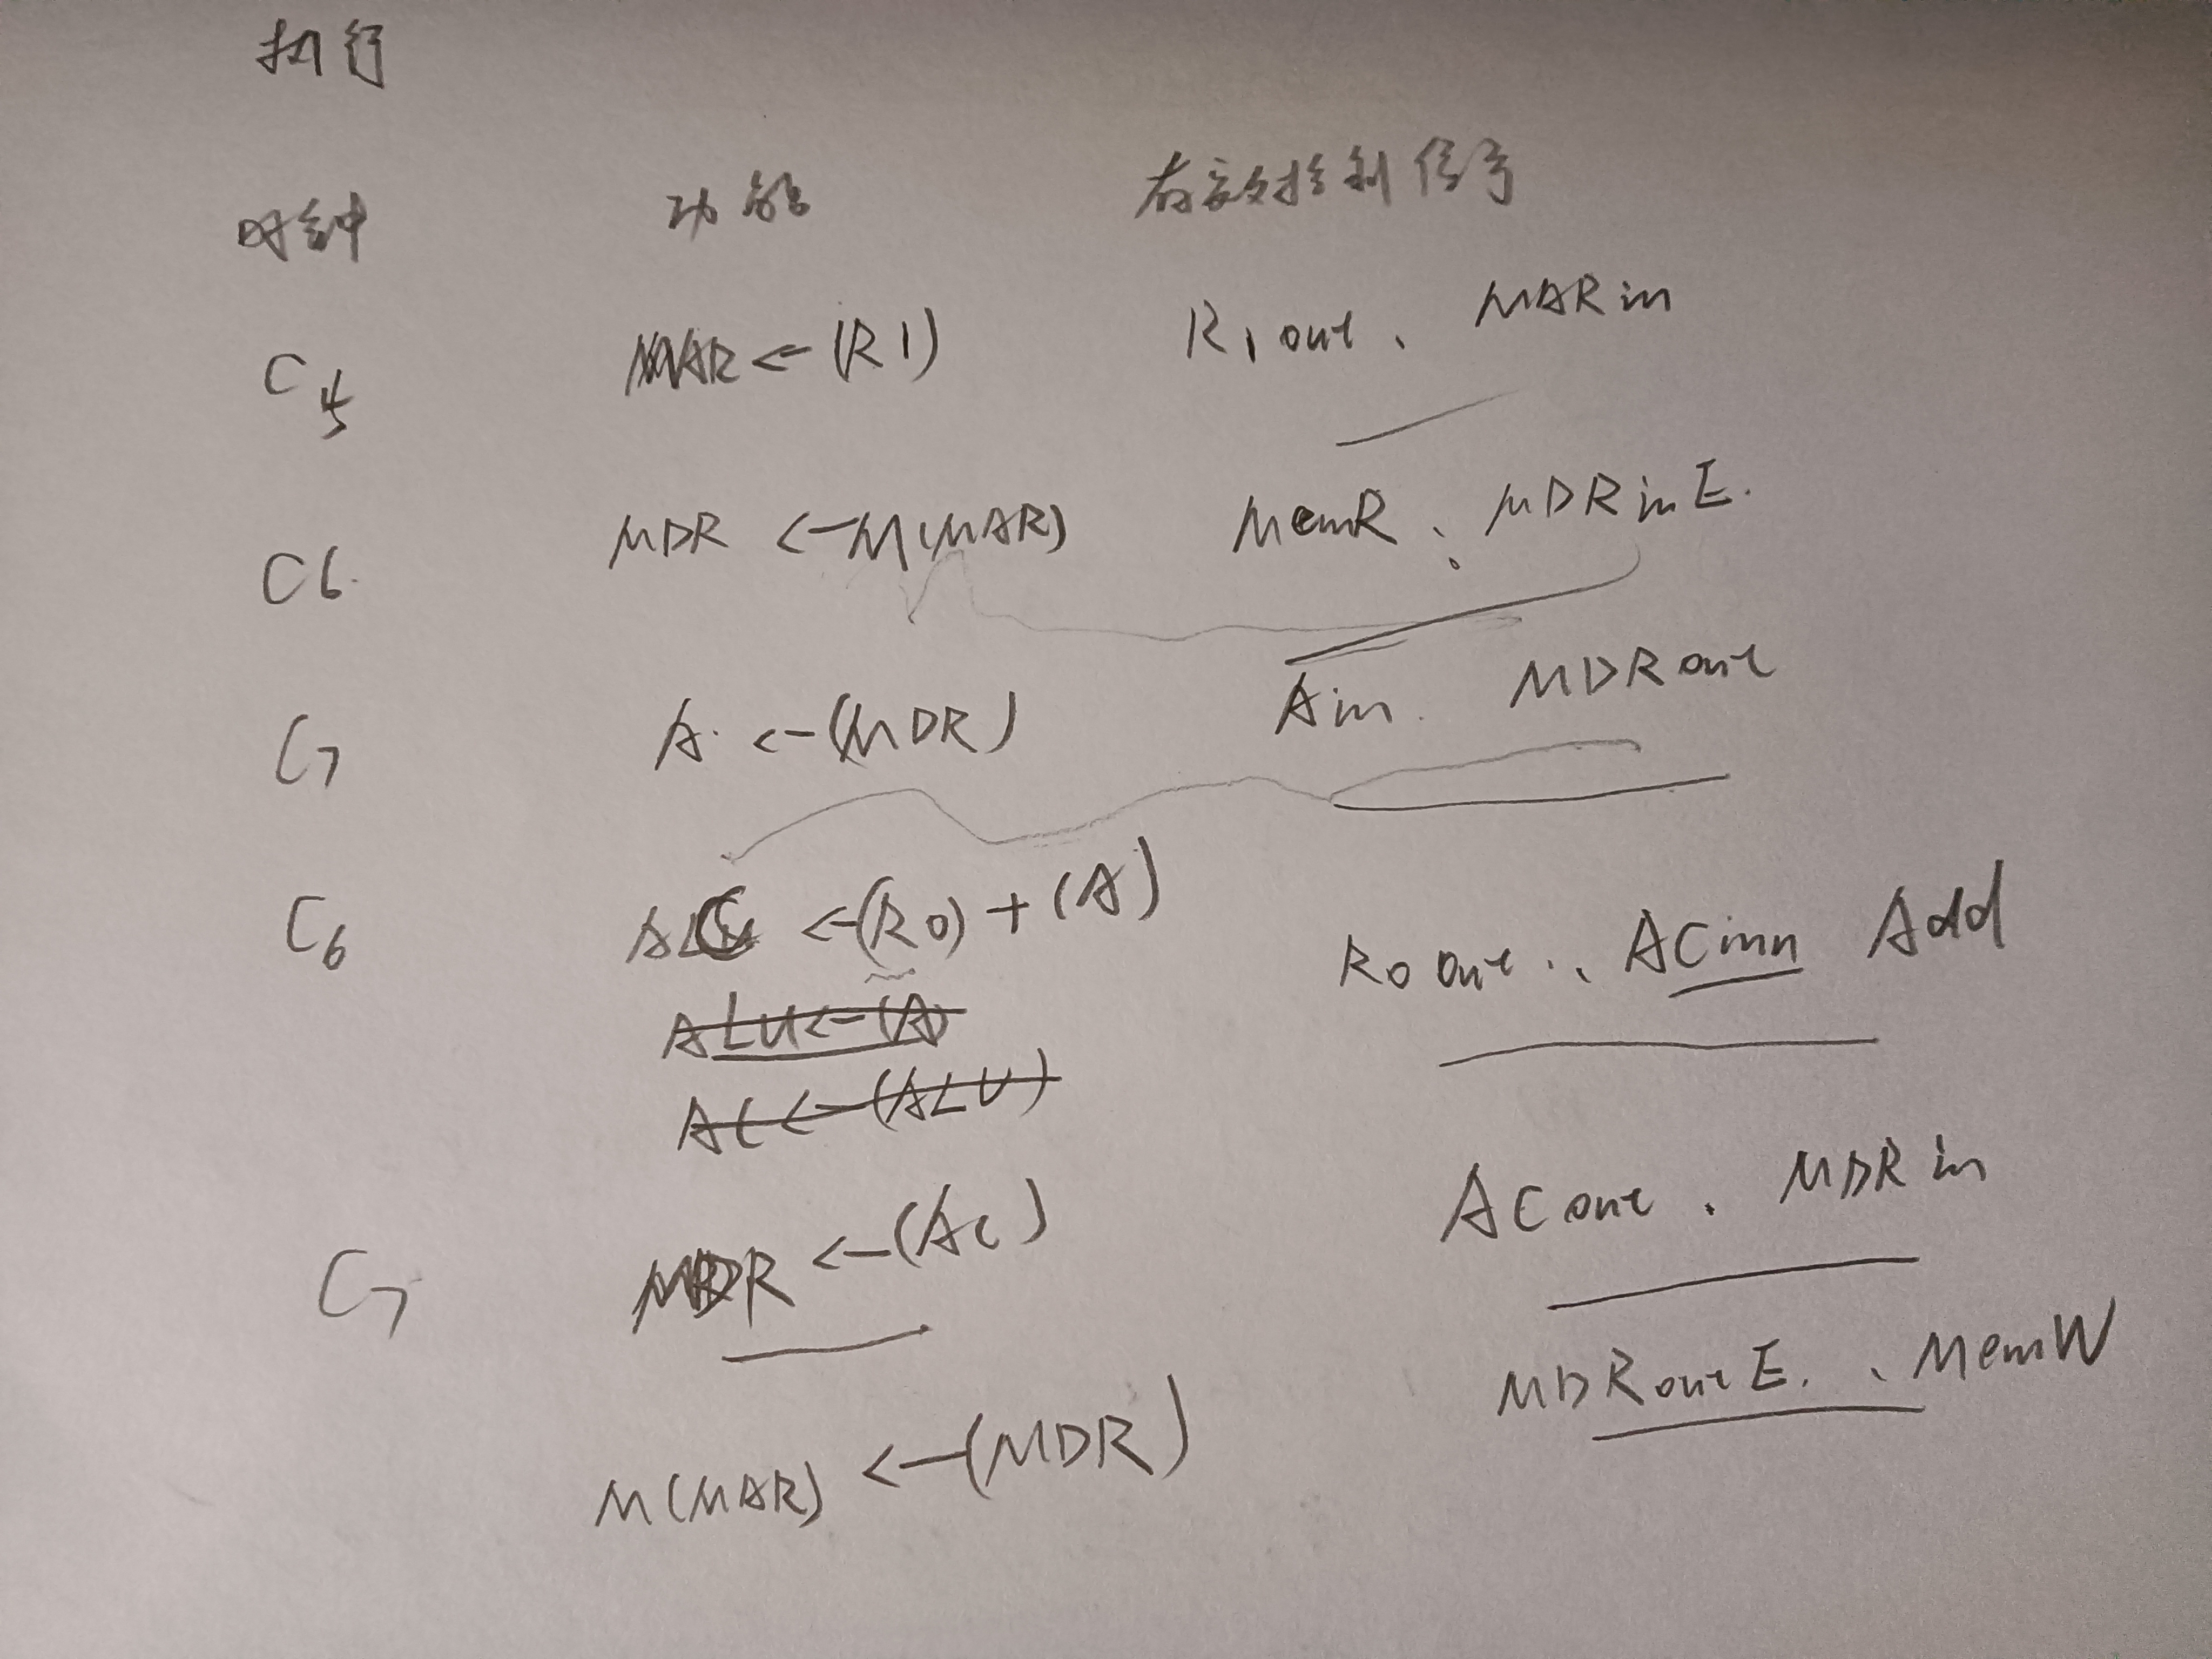 执行
时钟 功能 有效控制信号
C5 MAR ← (R1) R1out、MARin
C6 MDR ← M(MAR) MemR、MDRinE.
C7 A ← (MDR) Ain. MDRout
C6 AC ← (R0) + (A) R0out、ACinn Add
ALU ← (A)
AC ← (ALU)
C7 MDR ← (AC) ACout、MDRin
M(MAR) ← (MDR) MDRoutE.、MemW